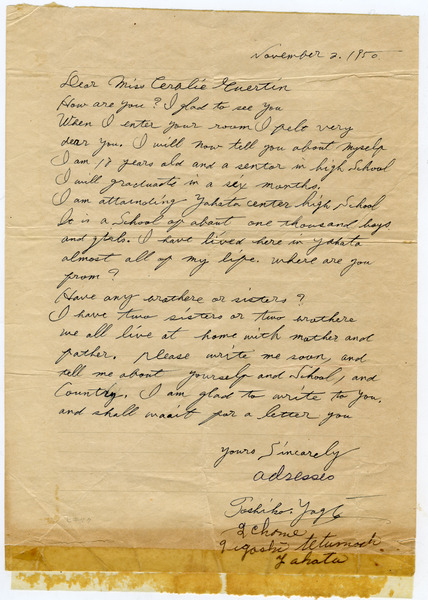 November 2. 1950
Dear Miss Ceralie Guertin
How are you? I glad to see you
When I enter your room I pelt very
dear you. I will now tell you about myselp
I am 17 years old and a sentor in high School
I will graduats in a six months.
I am attainding Yahata center high School
It is a School op about one thousand boys
and girls. I have lived here in Yahata
almost all op my life. where are you
prom?
Have any brothere or sisters?
I have two sisters or two brothere
we all live at home with mother and
pather. please write me soon, and
tell me about yourselp and School, and
Country. I am glad to write to you,
and shall waait por a letter you
yours Sincarely
adresseo
Toshiko.
2 chome
Yahata